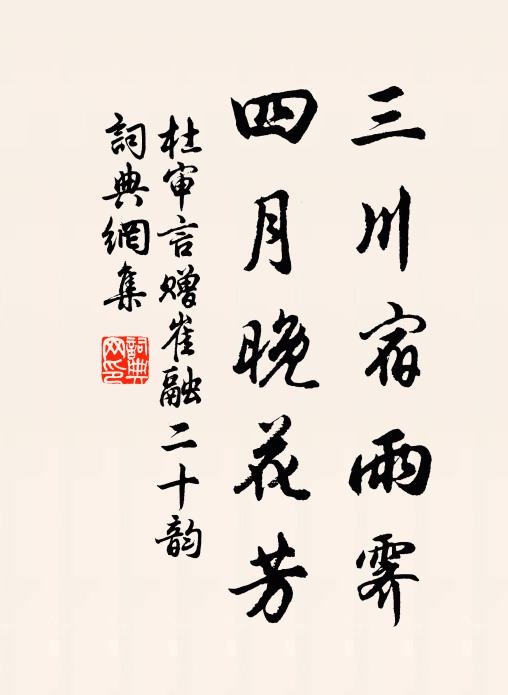 三川宿雨霽
四月晚花芳
杜审言赠崔融二十韵
詞典網集
詞典網印